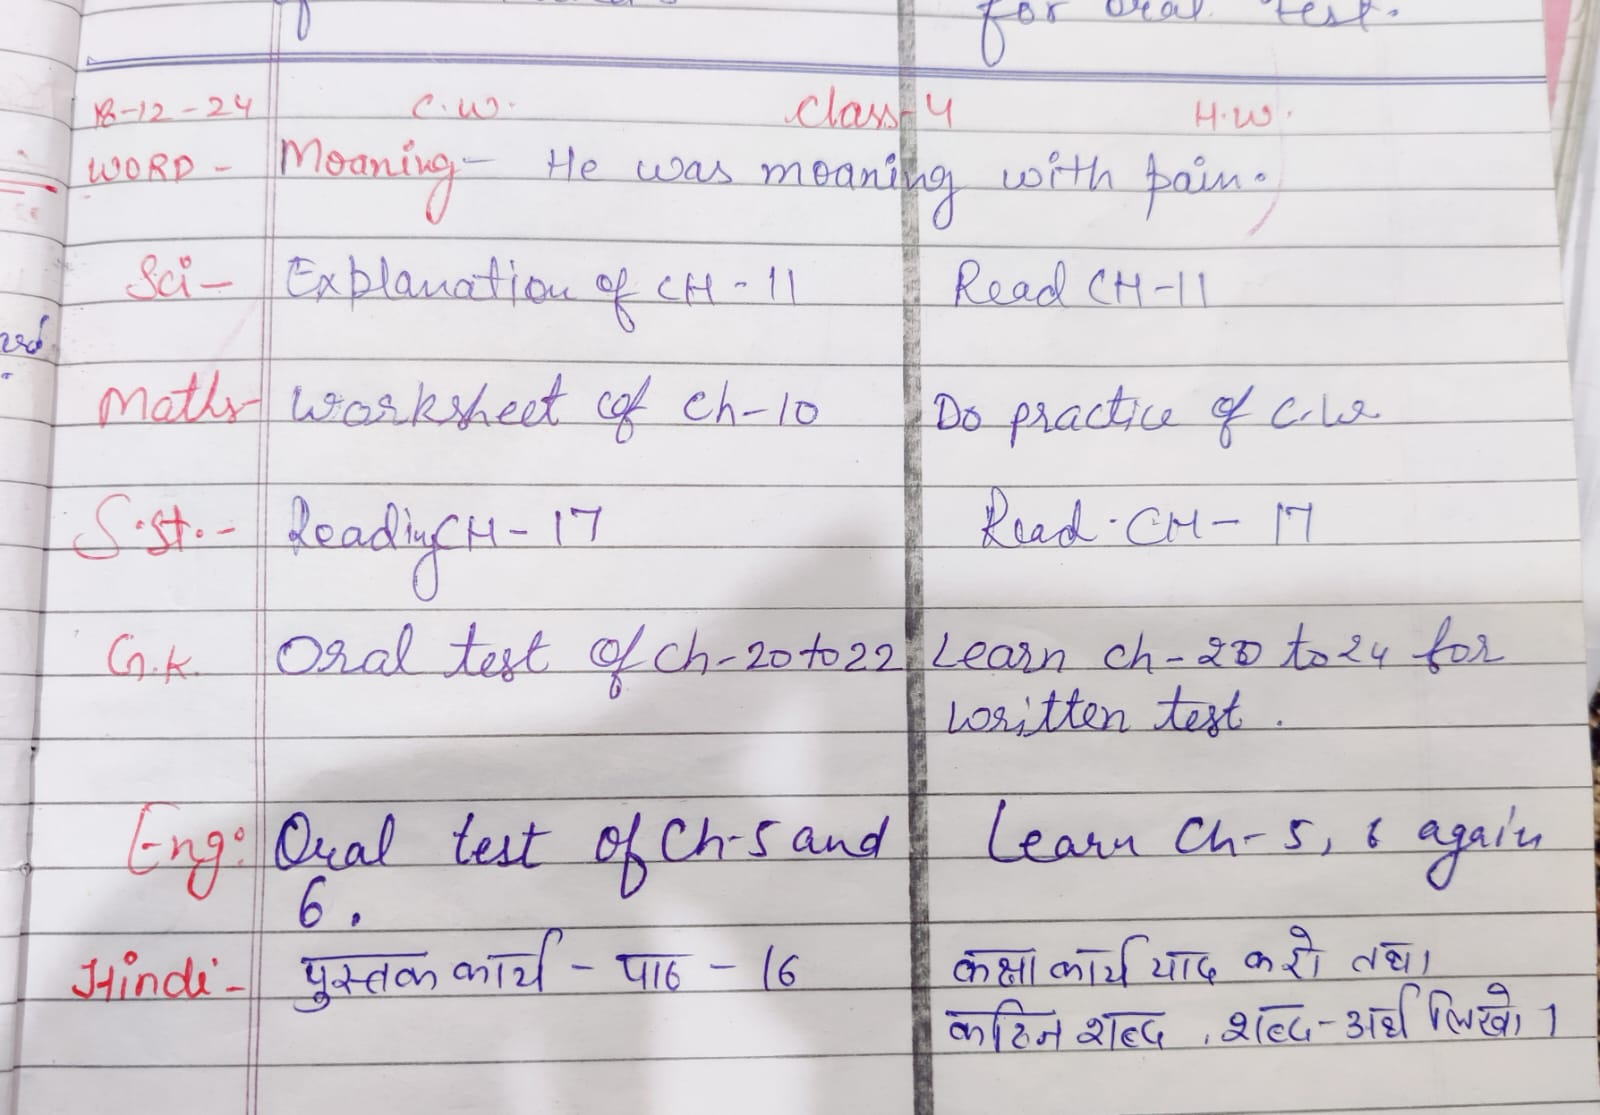 for oral test.
18-12-24 C.W. Class-4 H.W.
WORD - Moaning - He was moaning with pain.
Sci - Explanation of CH - 11 Read CH-11
Maths - Worksheet of Ch-10 Do practice of C.W
S.st. - Reading CH - 17 Read . CH - 17
G.K. Oral test of Ch-20 to 22 Learn ch-20 to 24 for
written test.
Eng: Oral test of Ch-5 and Learn Ch-5, 6 again
6.
Hindi - पुस्तक कार्य - पाठ - 16 कक्षा कार्य याद करो तथा
कठिन शब्द, शब्द-अर्थ लिखो।